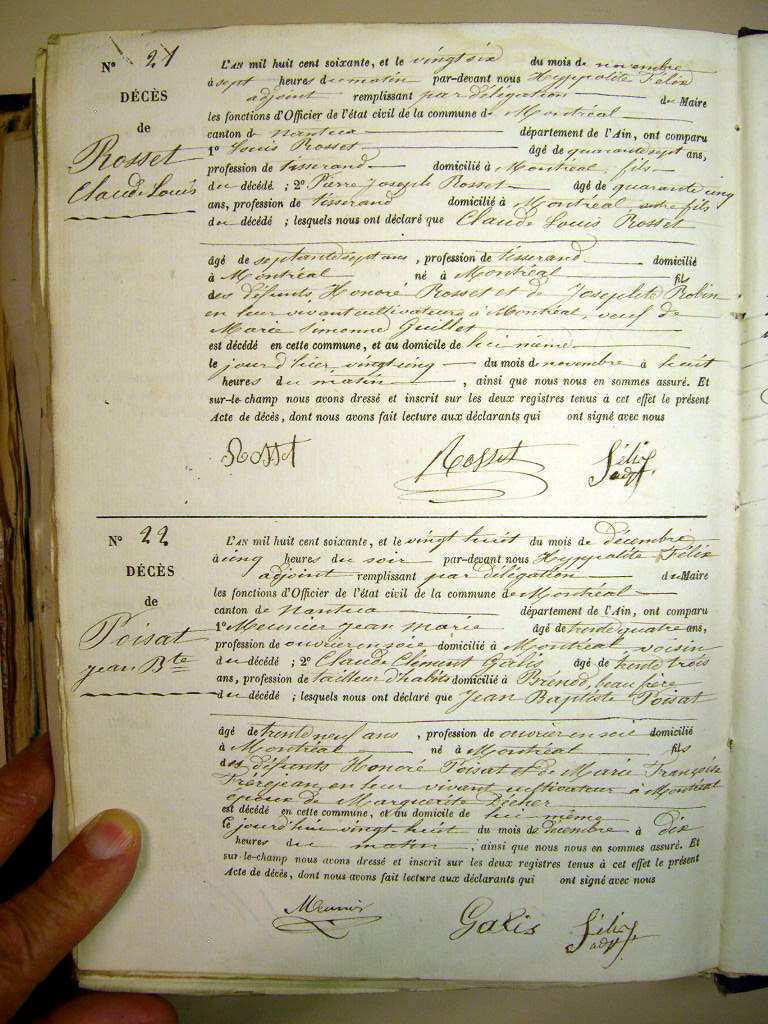 N° 21
DÉCÈS
de
Rosset
Claude Louis
L'AN mil huit cent soixante, et le vingt six du mois de novembre
à sept heures du matin par-devant nous Hyppolite Félix
adjoint remplissant par délégation du Maire
les fonctions d'Officier de l'état civil de la commune de Montréal
canton de Nantua département de l'Ain, ont comparu
1° Louis Rosset âgé de quarante sept ans,
profession de tisserand domicilié à Montréal, fils
du décédé ; 2° Pierre Joseph Rosset âgé de quarante cinq
ans, profession de tisserand domicilié à Montréal autre fils
du décédé ; lesquels nous ont déclaré que Claude Louis Rosset
âgé de septante sept ans, profession de tisserand domicilié
à Montréal né à Montréal fils
des défunts, Honoré Rosset et de Josephte Robin
en leur vivant cultivateurs à Montréal, veuf de
Marie Simonne Guillet
est décédé en cette commune, et au domicile de lui même
le jour d'hier vingt cinq du mois de novembre à huit
heures du matin, ainsi que nous nous en sommes assuré. Et
sur-le-champ nous avons dressé et inscrit sur les deux registres tenus à cet effet le présent
Acte de décès, dont nous avons fait lecture aux déclarants qui ont signé avec nous
Rosset Rosset Félix adjt.
N° 22
DÉCÈS
de
Poisat
jean Bte
L'AN mil huit cent soixante, et le vingt huit du mois de décembre
à cinq heures du soir par-devant nous Hyppolite Félix
adjoint remplissant par délégation du Maire
les fonctions d'Officier de l'état civil de la commune de Montréal
canton de Nantua département de l'Ain, ont comparu
1° Meunier jean marie âgé de trente quatre ans,
profession de ouvrier en soie domicilié à Montréal voisin
du décédé ; 2° Claude Clément Galis âgé de trente trois
ans, profession de tailleur d'habits domicilié à Brénod, beau frère
du décédé ; lesquels nous ont déclaré que Jean Baptiste Poisat
âgé de trente neuf ans, profession de ouvrier en soie domicilié
à Montréal né à Montréal fils
des défunts Honoré Poisat et de Marie Françoise
Frérejean, en leur vivant cultivateur à Montréal
époux de Marguerite
est décédé en cette commune, et au domicile de lui même
le jourd'hui vingt huit du mois de décembre à dix
heures du matin ; ainsi que nous nous en sommes assuré. Et
sur-le-champ nous avons dressé et inscrit sur les deux registres tenus à cet effet le présent
Acte de décès, dont nous avons fait lecture aux déclarants qui ont signé avec nous
Meunier Galis Félix adjt